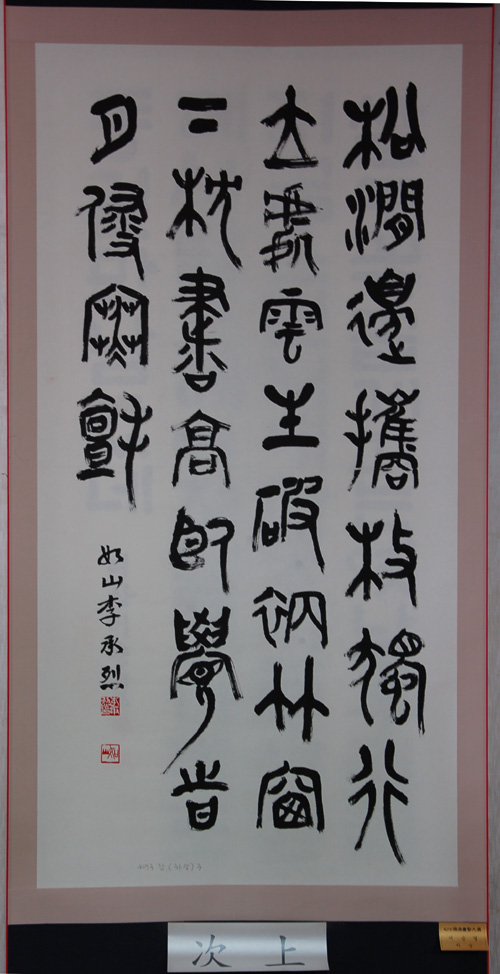 松澗邊攜杖獨行
立處雲生破衲竹窗
下枕書高臥覺時
月侵寒氈
如山李承烈
次上